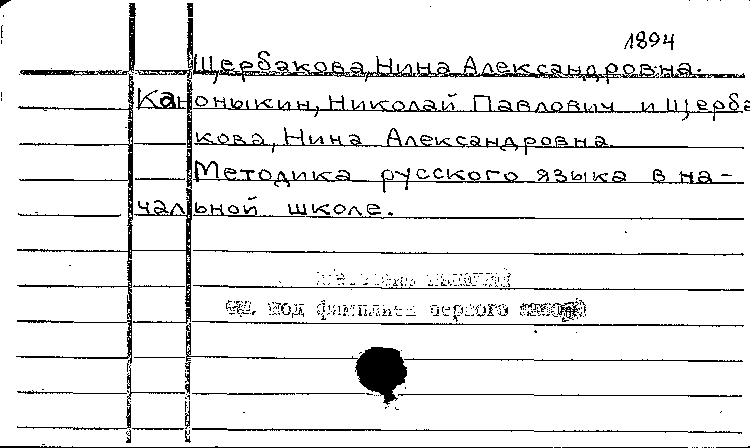 1894
Щербакова, Нина Александровна.
Каноныкин, Николай Павлович и Щерба
кова, Нина Александровна
Методика русского языка в на-
чальной школе.
под фамилией первого